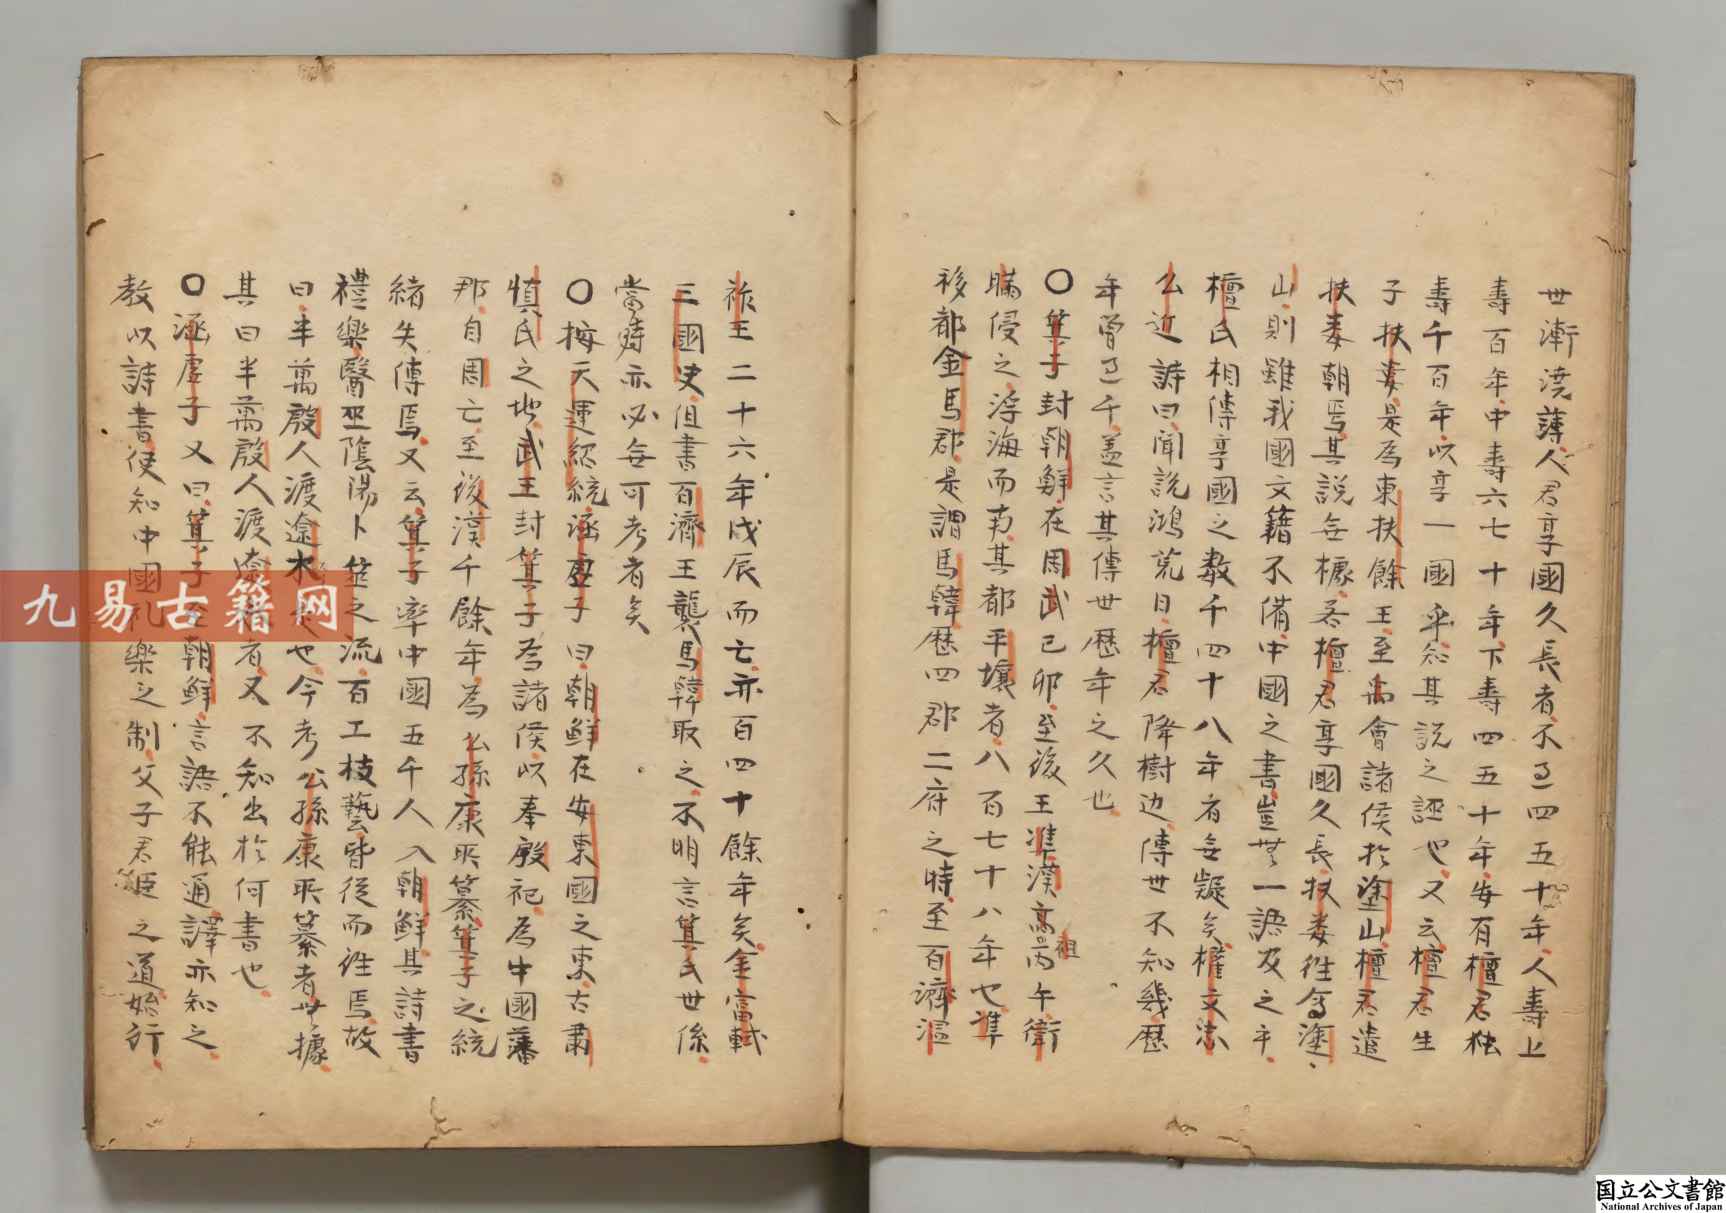 世漸澆薄人君享國久長者不過四五十年人壽上
壽百年中壽六七十年下壽四五十年安有檀君独
壽千百年以享一國乎知其說之誣也又云檀君生
子扶婁是為東扶餘王至禹會諸侯於塗山檀君遣
扶婁朝焉其說無據若檀君享國久長扶婁徃會塗
山則雖我國文籍不備中國之書豈無一語及之乎
檀氏相傳享國之数千四十八年者無疑矣權文忠
公近詩曰聞說鴻荒日檀君降樹边傳世不知幾歷
年曾過千盖言其傳世歷年之久也
〇箕子封朝鮮在周武己卯至後王準漢高祖丙午衛
瞞侵之浮海而南其都平壤者八百七十八年也準
移都金馬郡是謂馬韓歷四郡二府之時至百濟温
祚王二十六年戊辰而亡亦百四十餘年矣金富軾
三國史但書百濟王襲馬韓取之不明言箕氏世係
當時亦必無可考者矣
〇按天運紹統涵虚子曰朝鮮在安東國之東古肅
慎氏之地武王封箕子為諸侯以奉殷祀為中國藩
那自周亡至後漢千餘年為公孫康所簒箕子之統
緒失傳焉又云箕子率中國五千人入朝鮮其詩書
禮樂醫巫陰陽卜筮之流百工技藝皆從而徃焉故
曰半萬殷人渡遼水也今考公孫康所簒者無據
其曰半萬殷人渡遼者又不知出於何書也
〇涵虚子又曰箕子至朝鮮言語不能通譯亦知之
教以詩書使知中國礼樂之制父子君臣之道始行
九易古籍网
国立公文書館
National Archives of Japan